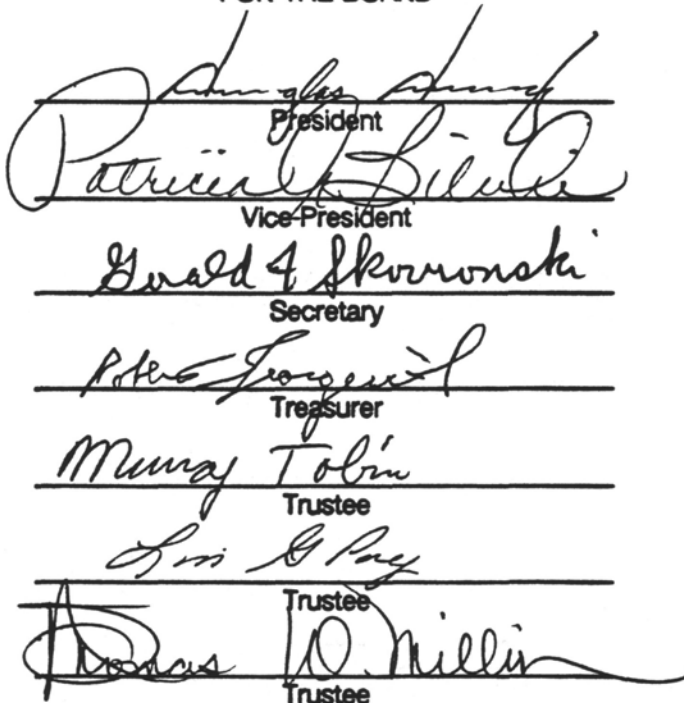 FOR THE BOARD
Douglas
President
Patricia
Vice-President
Gerald F Skowronski
Secretary
Robert
Treasurer
Murray Tobin
Trustee
G
Trustee
Thomas D. Miller
Trustee